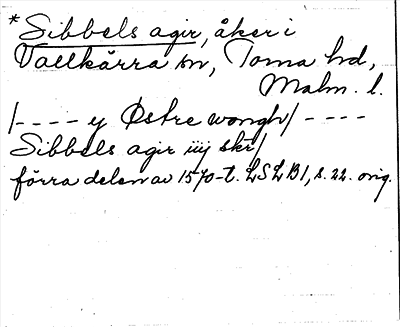 *Sibbels agir, åker i
Vallkärra sn, Torna hd,
Malm. l.
/---- y Østre wongh/ ----
Sibbels agir iiij skr/
förra delen av 1570-t. LSLB1, s. 22. orig.